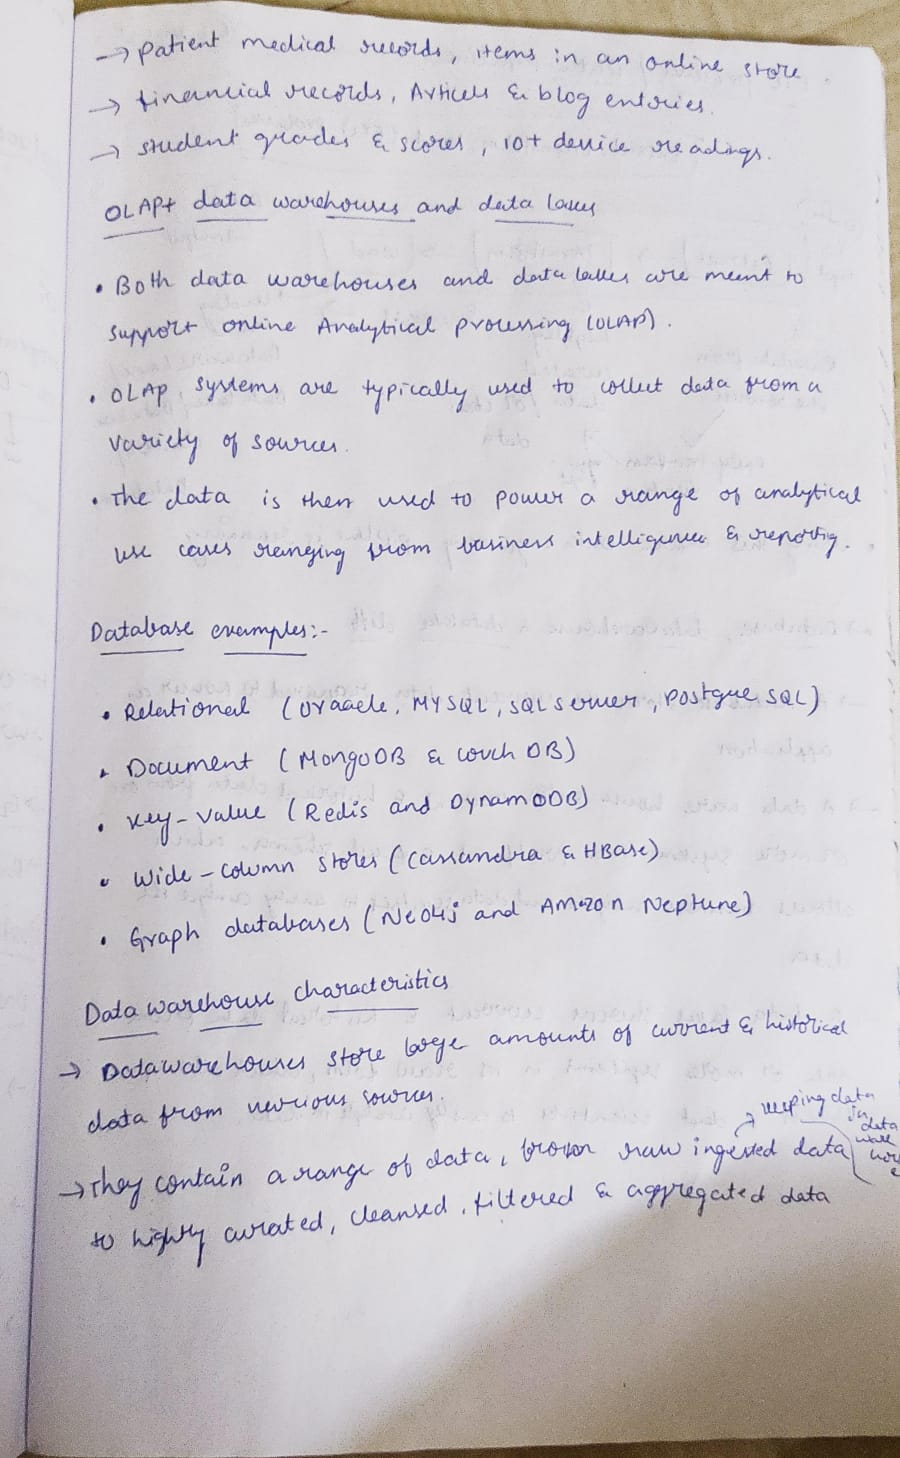 → patient medical records, items in an online store.
→ financial records, Articels & blog entries.
→ student grades & scores, 10+ device readings.
OLAP+ data warehouses and data lakes
• Both data warehouses and data lakes are meant to
support online Analytical processing (OLAP).
• OLAP systems are typically used to collect data from a
variety of sources.
• The data is then used to power a range of analytical
use cases ranging from business intelligence & reporting.
Database examples:-
• Relational (Oracle, MYSQL, SQL server, PostgreSQL)
• Document (MongoDB & Couch DB)
• Key-value (Redis and DynamoDB)
• Wide-column stores (Cassandra & HBase)
• Graph databases (Neo4j and Amazon Neptune)
Data warehouse characteristics
→ Datawarehouses store large amounts of current & historical
data from various sources.
keeping data
in
data
ware
hous
e
→ They contain a range of data, from raw ingested data
to highly curated, cleansed, filtered & aggregated data